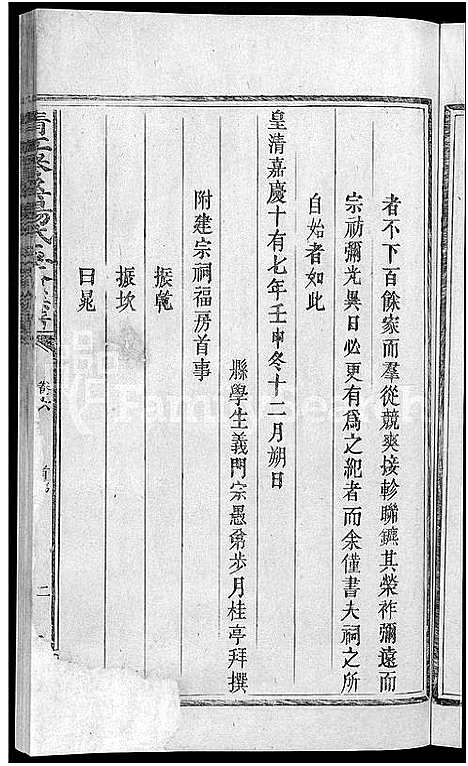 者不下百餘家而羣從競爽接軫聯鑣其榮祚彌遠而
宗祊彌光異日必更有為之紀者而余僅書夫祠之所
自始者如此
皇清嘉慶十有七年壬申冬十二月朔日
縣學生義門宗愚弟步月桂亭拜撰
附建宗祠福房首事
振乾
振坎
日晃
卷
二